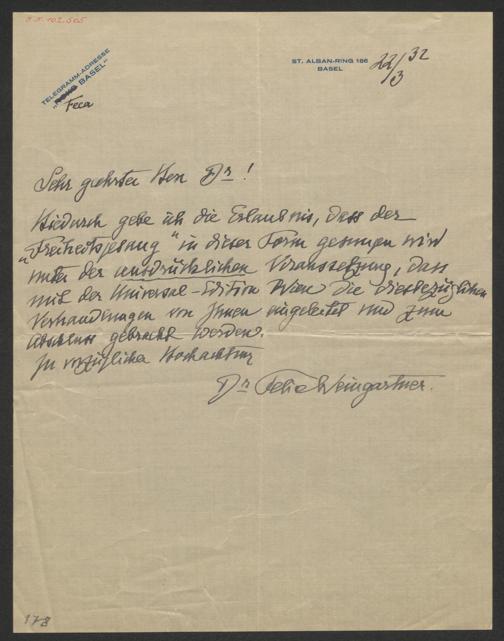 H.N. 102.505
TELEGRAMM-ADRESSE
BASEL"
Feca
ST. ALBAN-RING 186
BASEL
22/3 32
Sehr geehrter Herr Dr!
Hiedurch gebe ich die Erlaubnis, dass der
„Freiheitsgesang" in dieser Form gesungen wird
unter der ausdrücklichen Voraussetzung, dass
mit der Universal-Edition Wien die diesbezüglichen
Verhandlungen von Ihnen eingeleitet und zum
Abschluss gebracht werden.
In vorzüglicher Hochachtung
Dr Felix Weingartner.
178